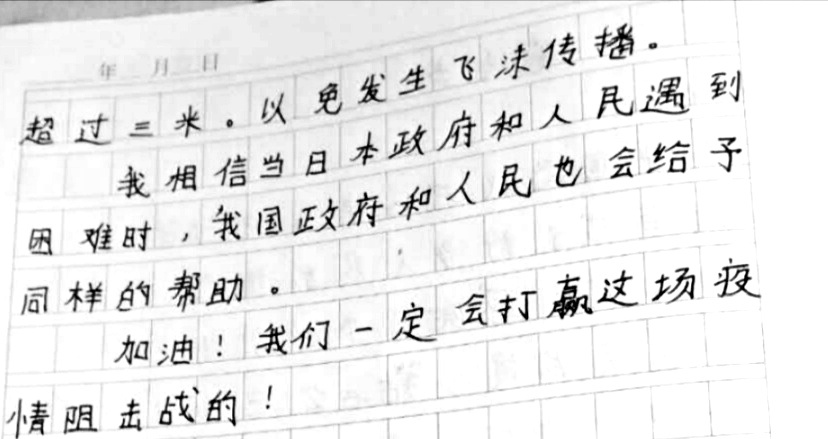 年 月 日
超过三米。以免发生飞沫传播。
我相信当日本政府和人民遇到
困难时，我国政府和人民也会给予
同样的帮助。
加油！我们一定会打赢这场疫
情阻击战的！